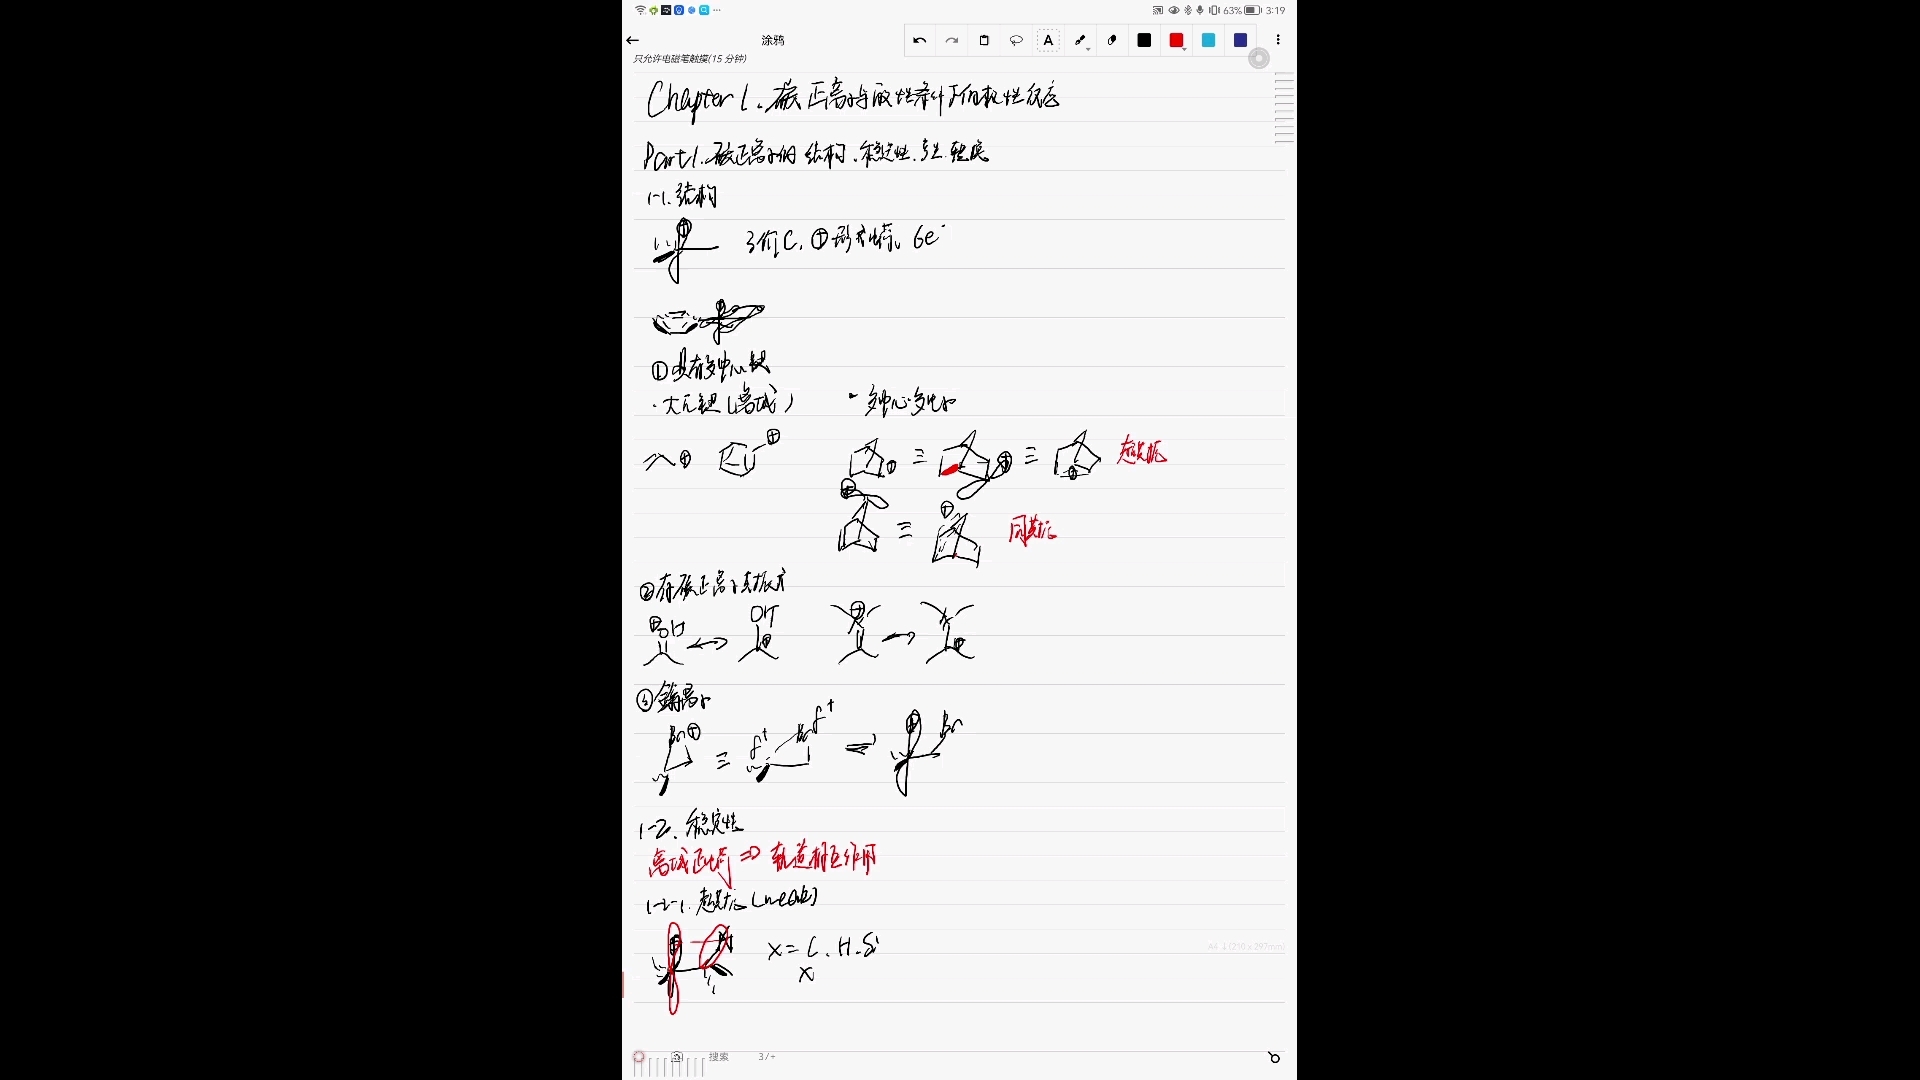 63% 3:19
涂鸦
A
只允许电磁笔触摸(15 分钟)
Chapter 1. 碳正离子与酸性条件下的极性反应
Part 1. 碳正离子的结构、稳定性、产生、
1-1. 结构
3价C, ⊕形式电荷, 6e⁻
① 具有多中心键
· 大π键(离域) · 多中心多电子
⊕ ⊕ ⊕ ≡ ⊕ ≡ ⊕ 超共轭
⊕ ≡ ⊕ 同共轭
② 有碳正离子共振式
⊕OH ↔ OH ⊕ ⊕ ↔ ⊕
③ 鎓离子
Br⊕ ≡ δ⁺ Br δ⁺ ⇒ ⊕ Br
1-2. 稳定性
离域正电荷 ⇒ 轨道相互作用
1-2-1. 超共轭(weak)
X = C, H, Si
X
A4 ↓ (210 x 297mm)
搜索 3/+